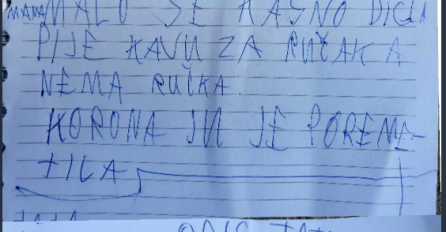 MAMA MALO SE KASNO DIGLA
PIJE KAVU ZA RUČAK A
NEMA RUČKA.
KORONA JU JE POREME-
TILA